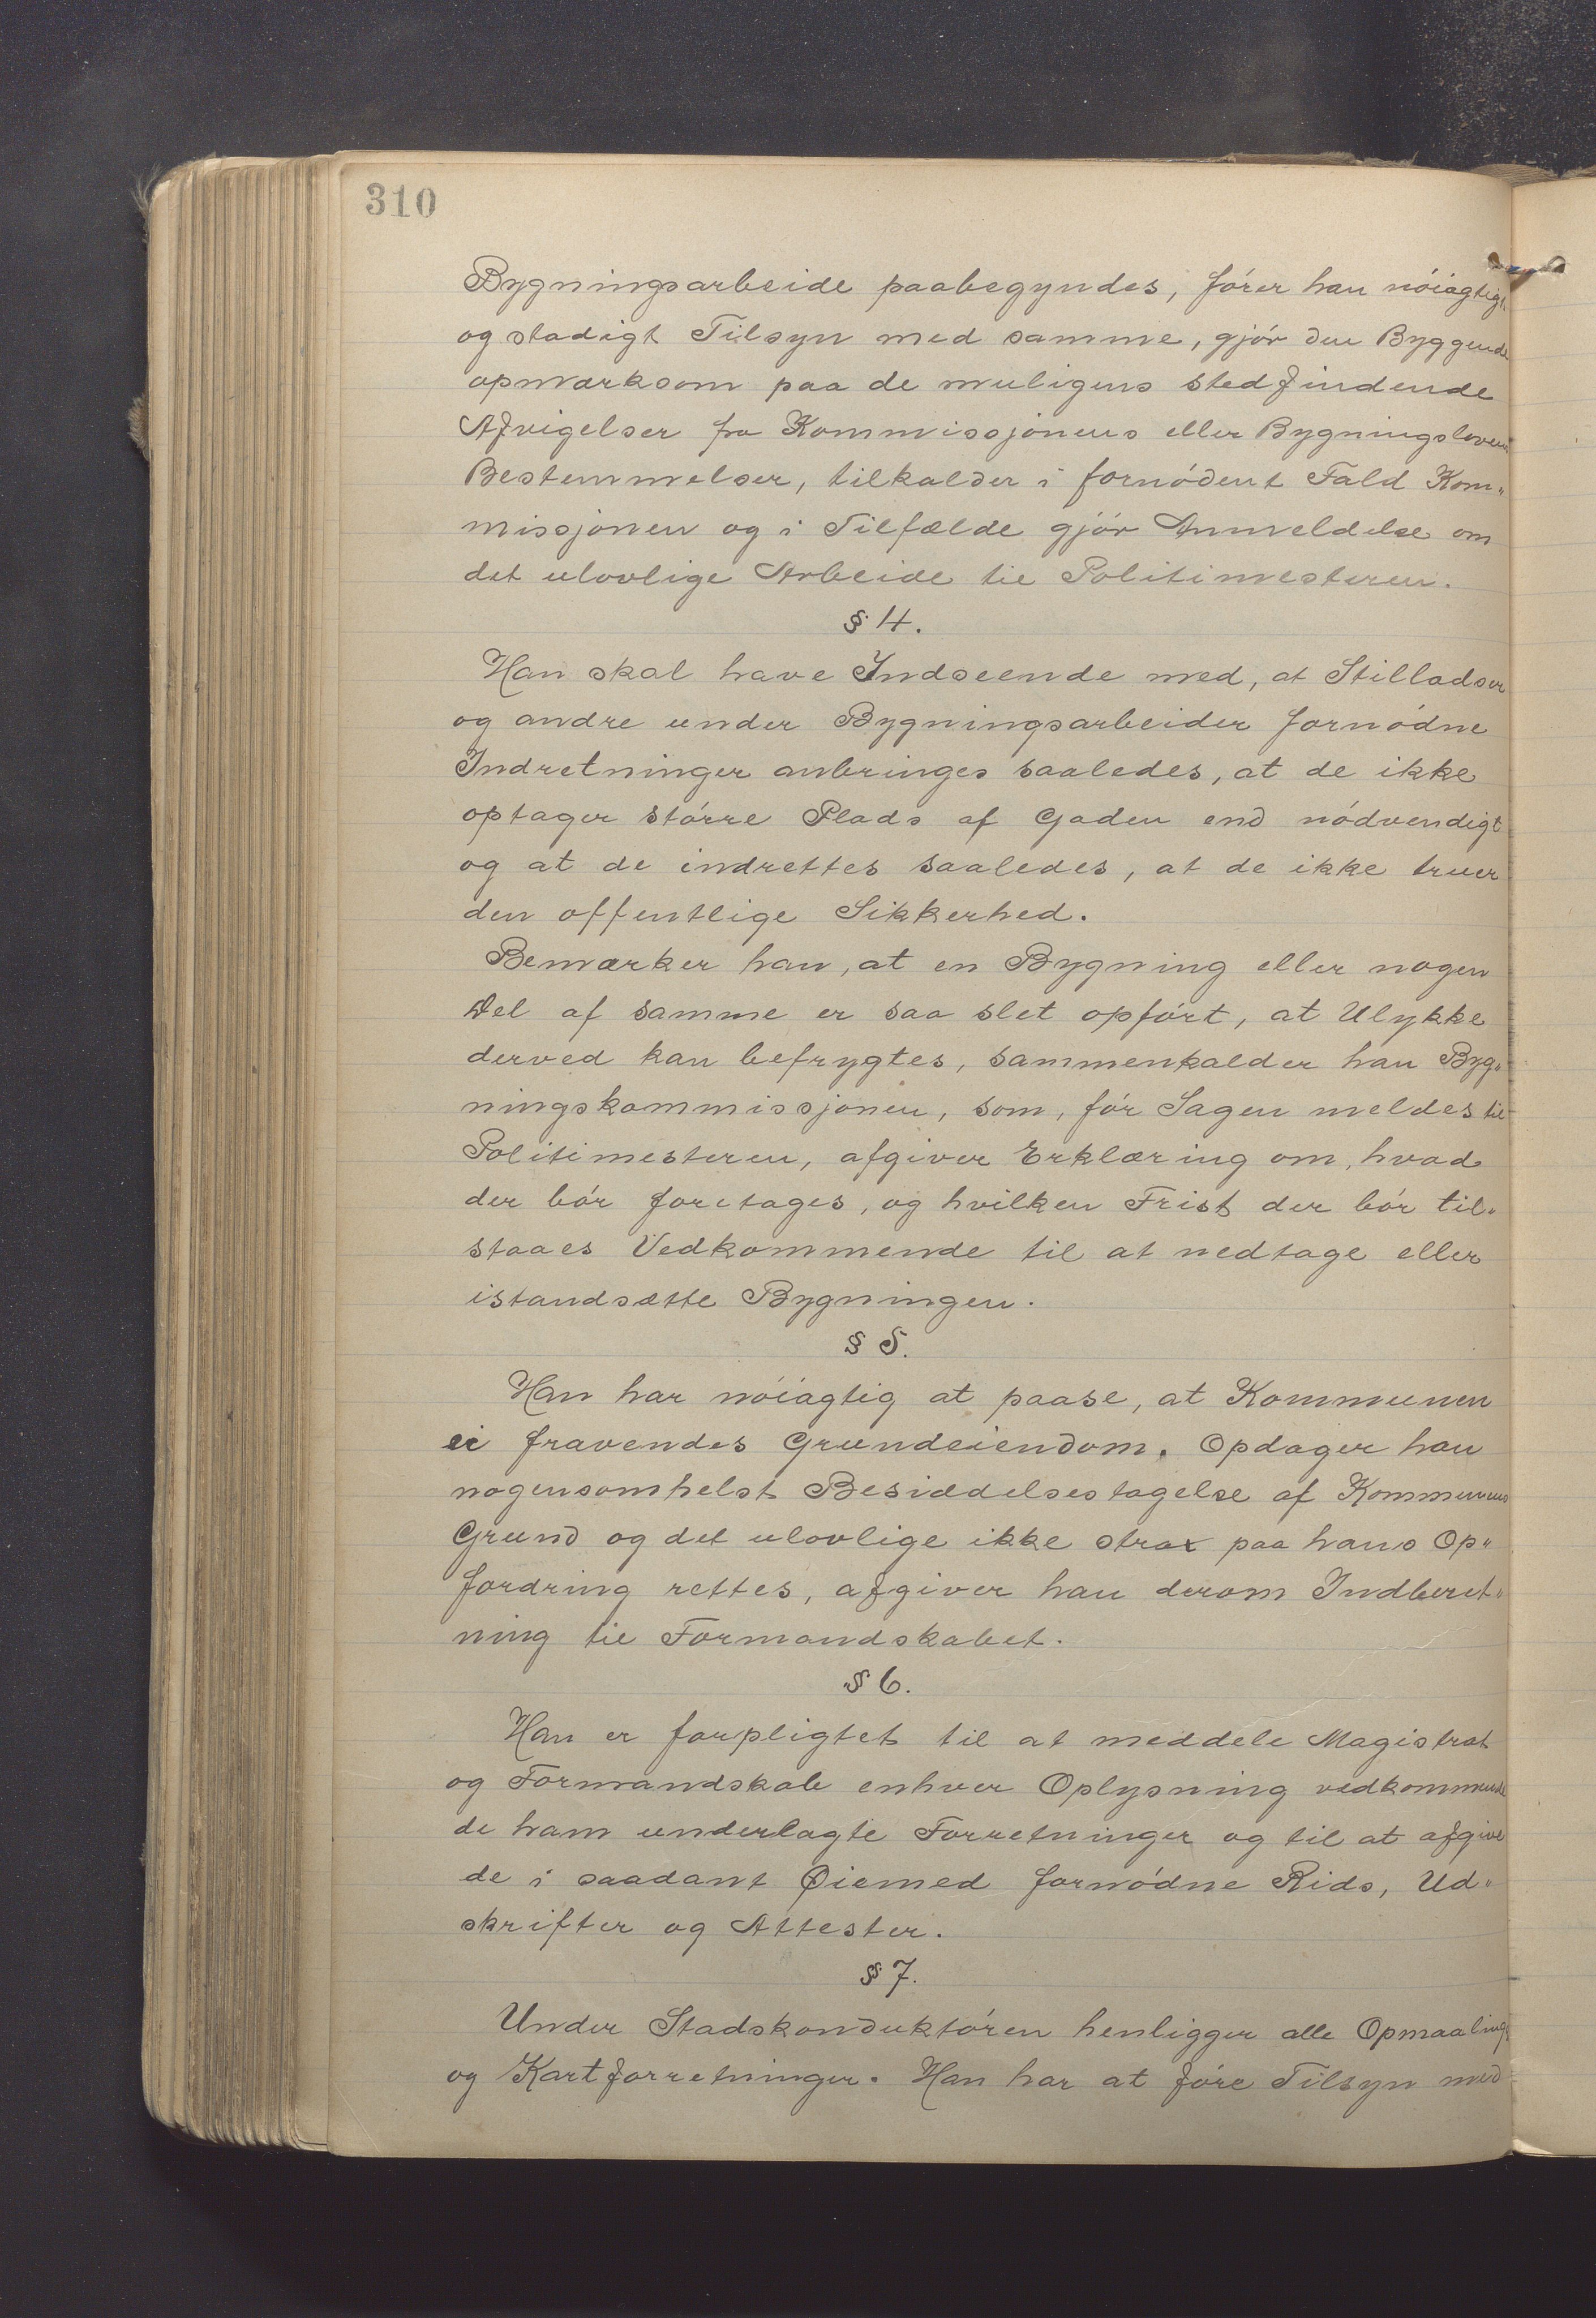 310
Bygningsarbeide paabegyndes, fórer han nóiagtigt
og stadigt Tilsyn med samme, gjór den Byggende
opmærksom paa de muligens stedfindende
Afvigelser fra Kommissjonens eller Bygningslovens
Bestemmelser, tilkalder i fornódent Fald Kom„
missjonen og i Tilfælde gjór Anmeldelse om
det ulovlige Arbeide til Politimesteren.
§ 4.
Han skal have Indseende med, at Stilladser
og andre under Bygningsarbeider fornódne
Indretninger anbringes saaledes, at de ikke
optager stórre Plads af Gaden end nódvendigt
og at de indrettes saaledes, at de ikke truer
den offentlige Sikkerhed.
Bemærker han, at en Bygning eller nogen
Del af samme er saa slet opfórt, at Ulykke
derved kan befrygtes, sammenkalder han Byg„
ningskommissjonen, som, fór Sagen meldes til
Politimesteren, afgiver Erklæring om, hvad
der bór foretages, og hvilken Frist der bór til„
staaes Vedkommende til at nedtage eller
istandsætte Bygningen.
§ 5.
Han har nóiagtig at paase, at Kommunen
ei fravendes Grundeiendom. Opdager han
nogensomhelst Besiddelsestagelse af Kommunens
Grund og det ulovlige ikke strax paa hans Op„
fordring rettes, afgiver han derom Indberet„
ning til Formandskabet.
§ 6.
Han er forpligtet til at meddele Magistrat
og Formandskab enhver Oplysning vedkommende
de ham underlagte Forretninger og til at afgive
de i saadant Øiemed fornódne Rids, Ud„
skrifter og Attester.
§ 7.
Under Stadskonduktóren henligger alle Opmaalings
og Kartforretninger. Han har at fóre Tilsyn med